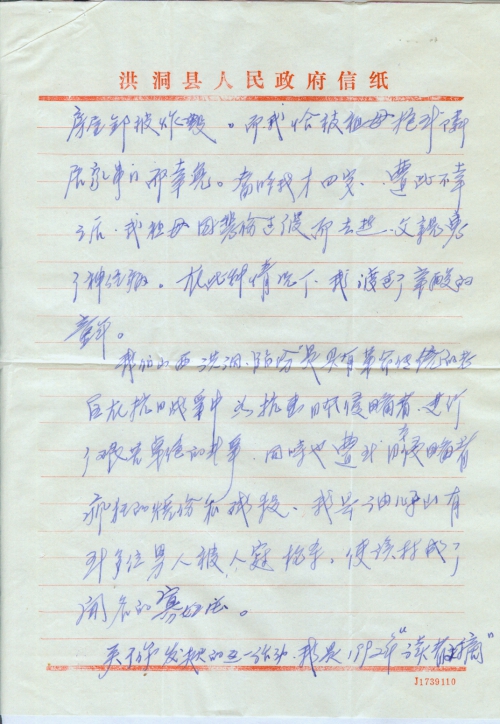 洪洞县人民政府信纸
房屋都被炸毁。而我恰被祖母抱到隔
居家 而幸免。当时我才四岁、遭此不幸
之后,我祖母因悲伤过度而去世、父亲患
了神经病。在此种情况下、我渡过了辛酸的
童年。
我们山西洪洞、临汾是具有革命传统的老
区在抗日战争中为抗击日本侵略者、进行
了艰苦卓绝的斗争、同时也遭到日本侵略者
疯狂的烧 和残杀、我县 山有
位男人被 杀,使该村成了
闻名的寡妇 。
关于你发起的这一活动、我是1992年“读者 摘”
J1739110